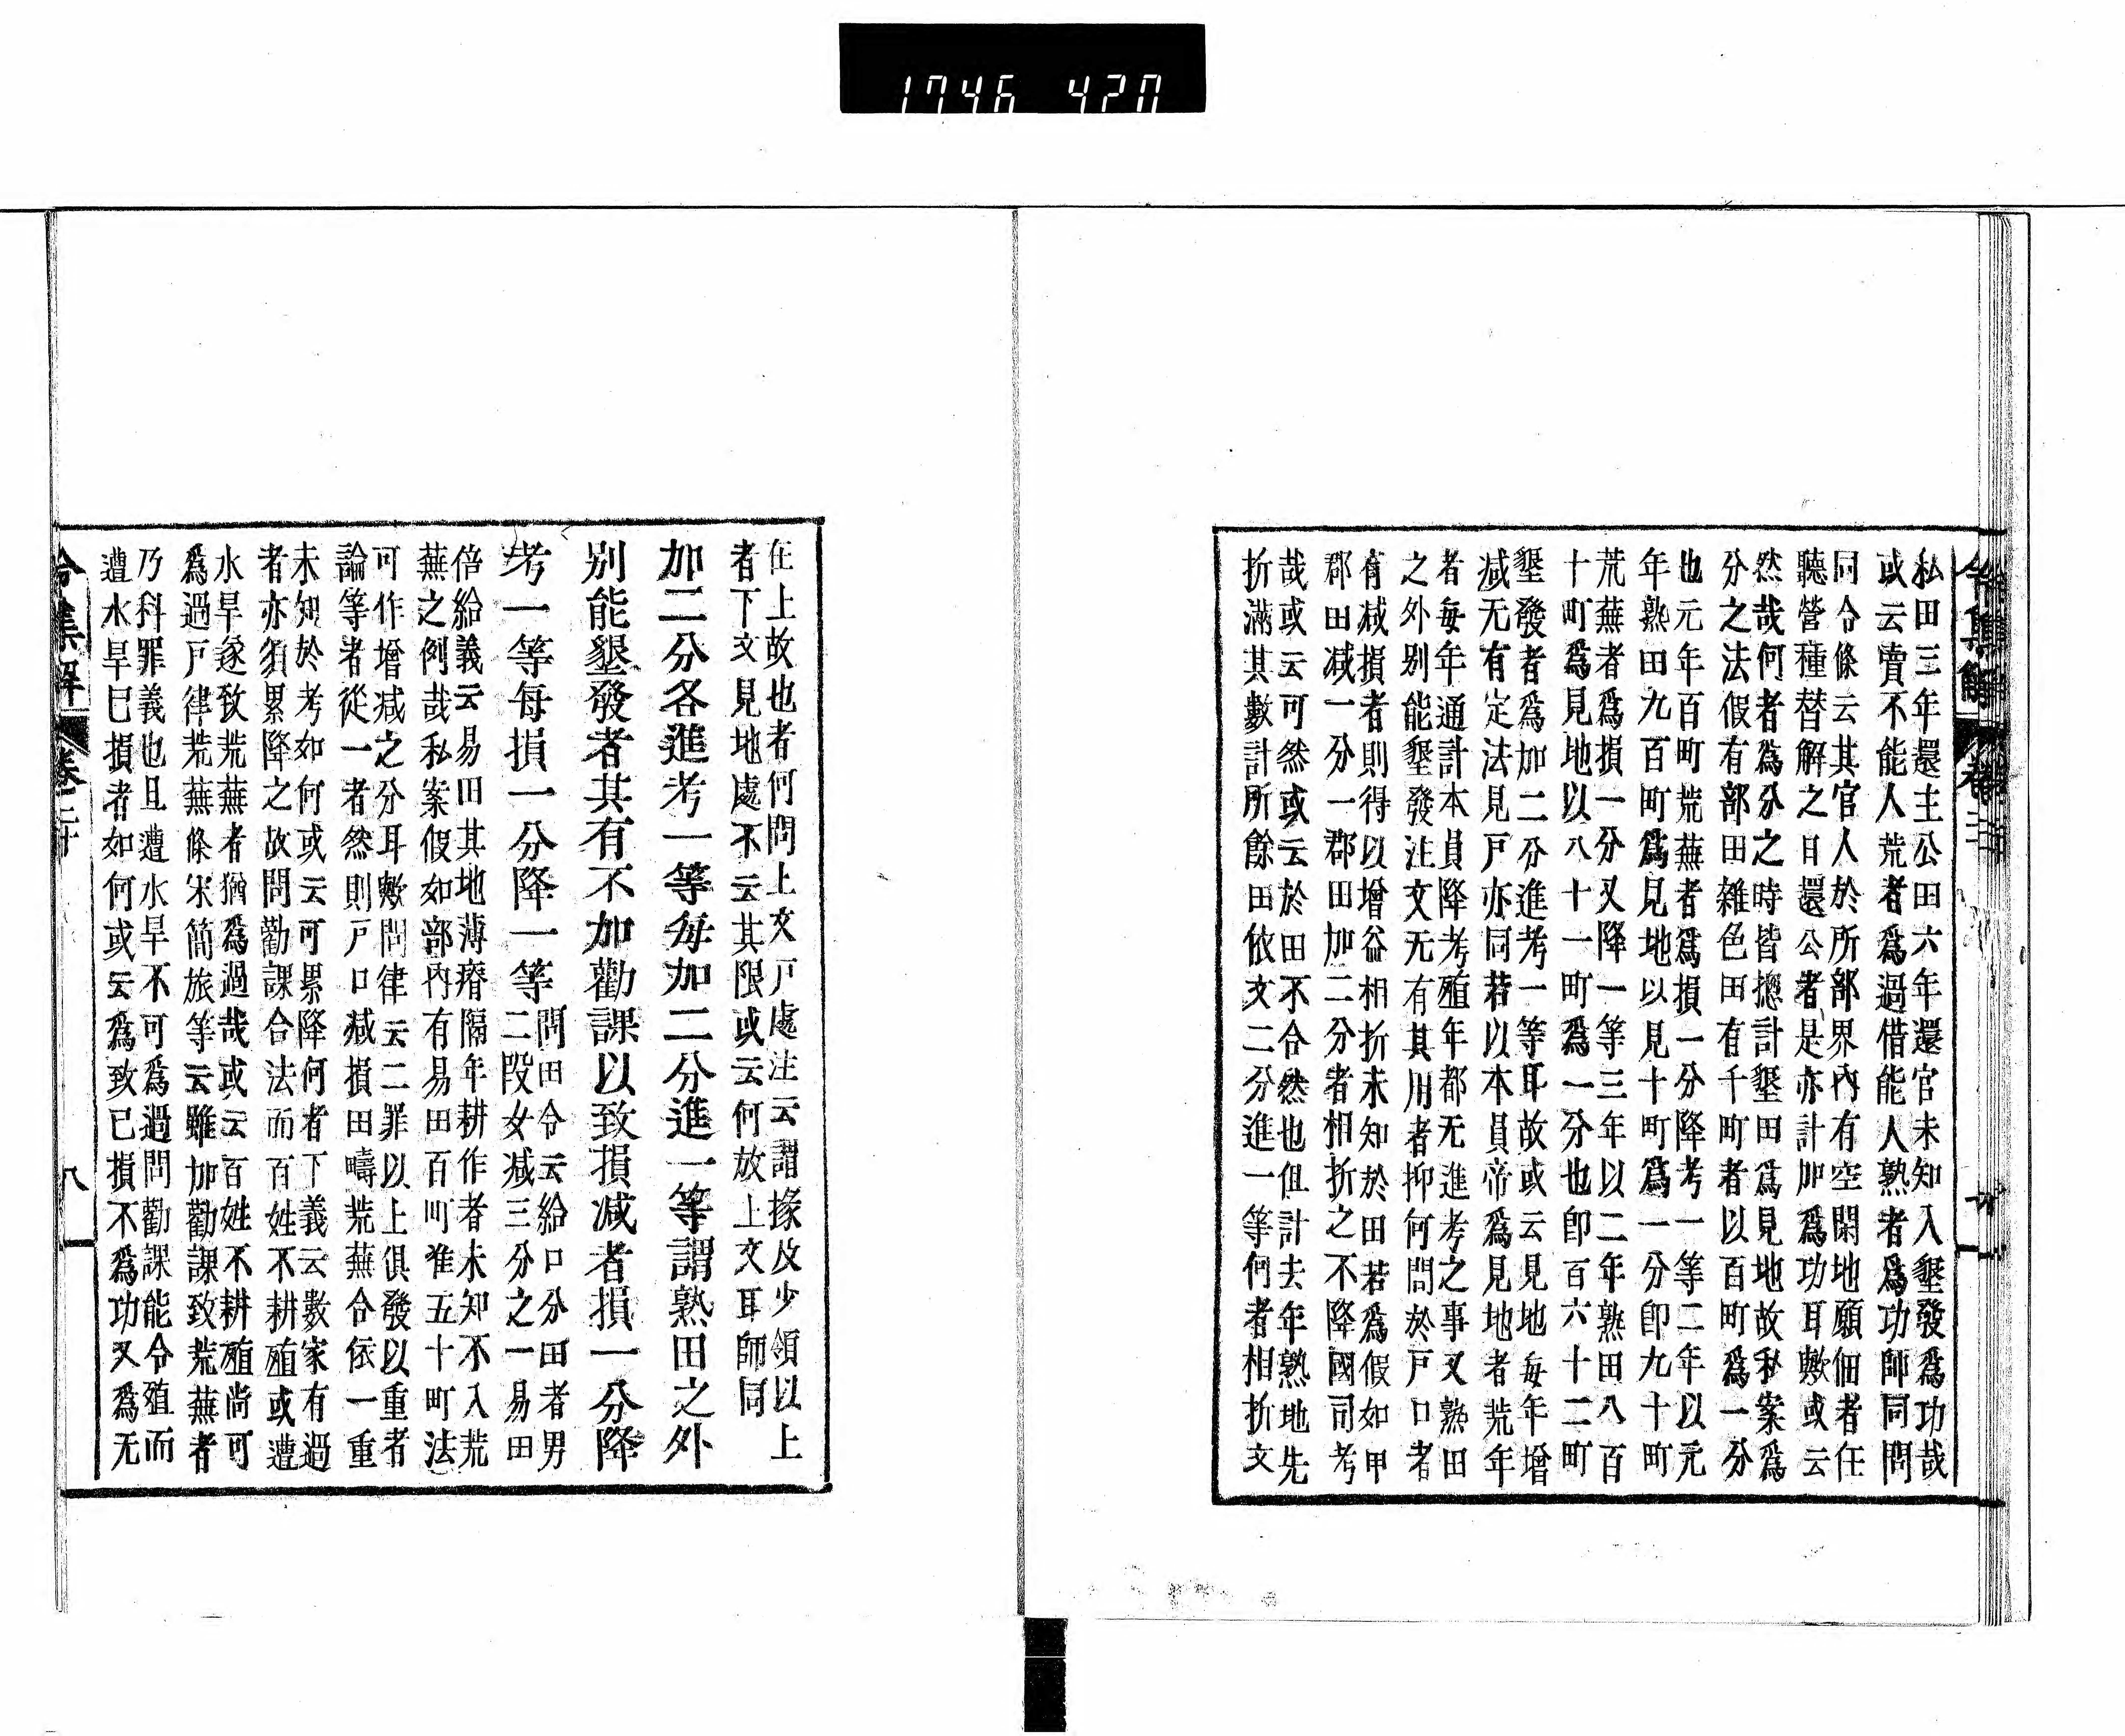 1746 420
私田三年還主公田六年還官未知入墾發爲功哉
或云賣不能人荒者爲過借能人熟者爲功師同問
同令條云其官人於所部界內有空閑地願佃者任
聽營種替解之日還公者是亦計加爲功耳歟或云
然哉何者爲分之時皆揔計墾田爲見地故私案爲
分之法假有部田雜色田有千町者以百町爲一分
也元年百町荒蕪者爲損一分降考一等二年以元
年熟田九百町爲見地以見十町爲一分卽九十町
荒蕪者爲損一分又降一等三年以二年熟田八百
十町爲見地以八十一町爲一分也卽百六十二町
墾發者爲加二分進考一等耳故或云見地每年增
减无有定法見戸亦同若以本員帝爲見地者荒年
者每年通計本員降考殖年都无進考之事又熟田
之外别能墾發注文无有其用者抑何問於戸口者
有减損者則得以增益相折未知於田若爲假如甲
郡田减一分一郡田加二分者相折之不降國司考
哉或云可然或云於田不合然也但計去年熟地先
折滿其數計所餘田依文二分進一等何者相折文
在上故也者何問上文戸處注云謂掾及少領以上
者下文見地處不云其限或云何放上文耳師同
加二分各進考一等每加二分進一等謂熟田之外
别能墾發者其有不加勸課以致損减者損一分降
考一等每損一分降一等
問田令云給口分田者男
二段女减三分之一易田
倍給義云易田其地薄瘠隔年耕作者未知不入荒
蕪之例哉私案假如部內有易田百町准五十町法
可作增减之分耳歟問律云二罪以上俱發以重者
論等者從一者然則戸口减損田疇荒蕪合依一重
未知於考如何或云可累降何者下義云數家有過
者亦須累降之故問勸課合法而百姓不耕殖或遭
水旱遂致荒蕪者猶爲過哉或云百姓不耕殖尙可
爲過戸律荒蕪條宋簡旅等云雖加勸課致荒蕪者
乃科罪義也且遭水旱不可爲過問勸課能令殖而
遭水旱已損者如何或云爲致已損不爲功又爲无
令集解 卷二十 八